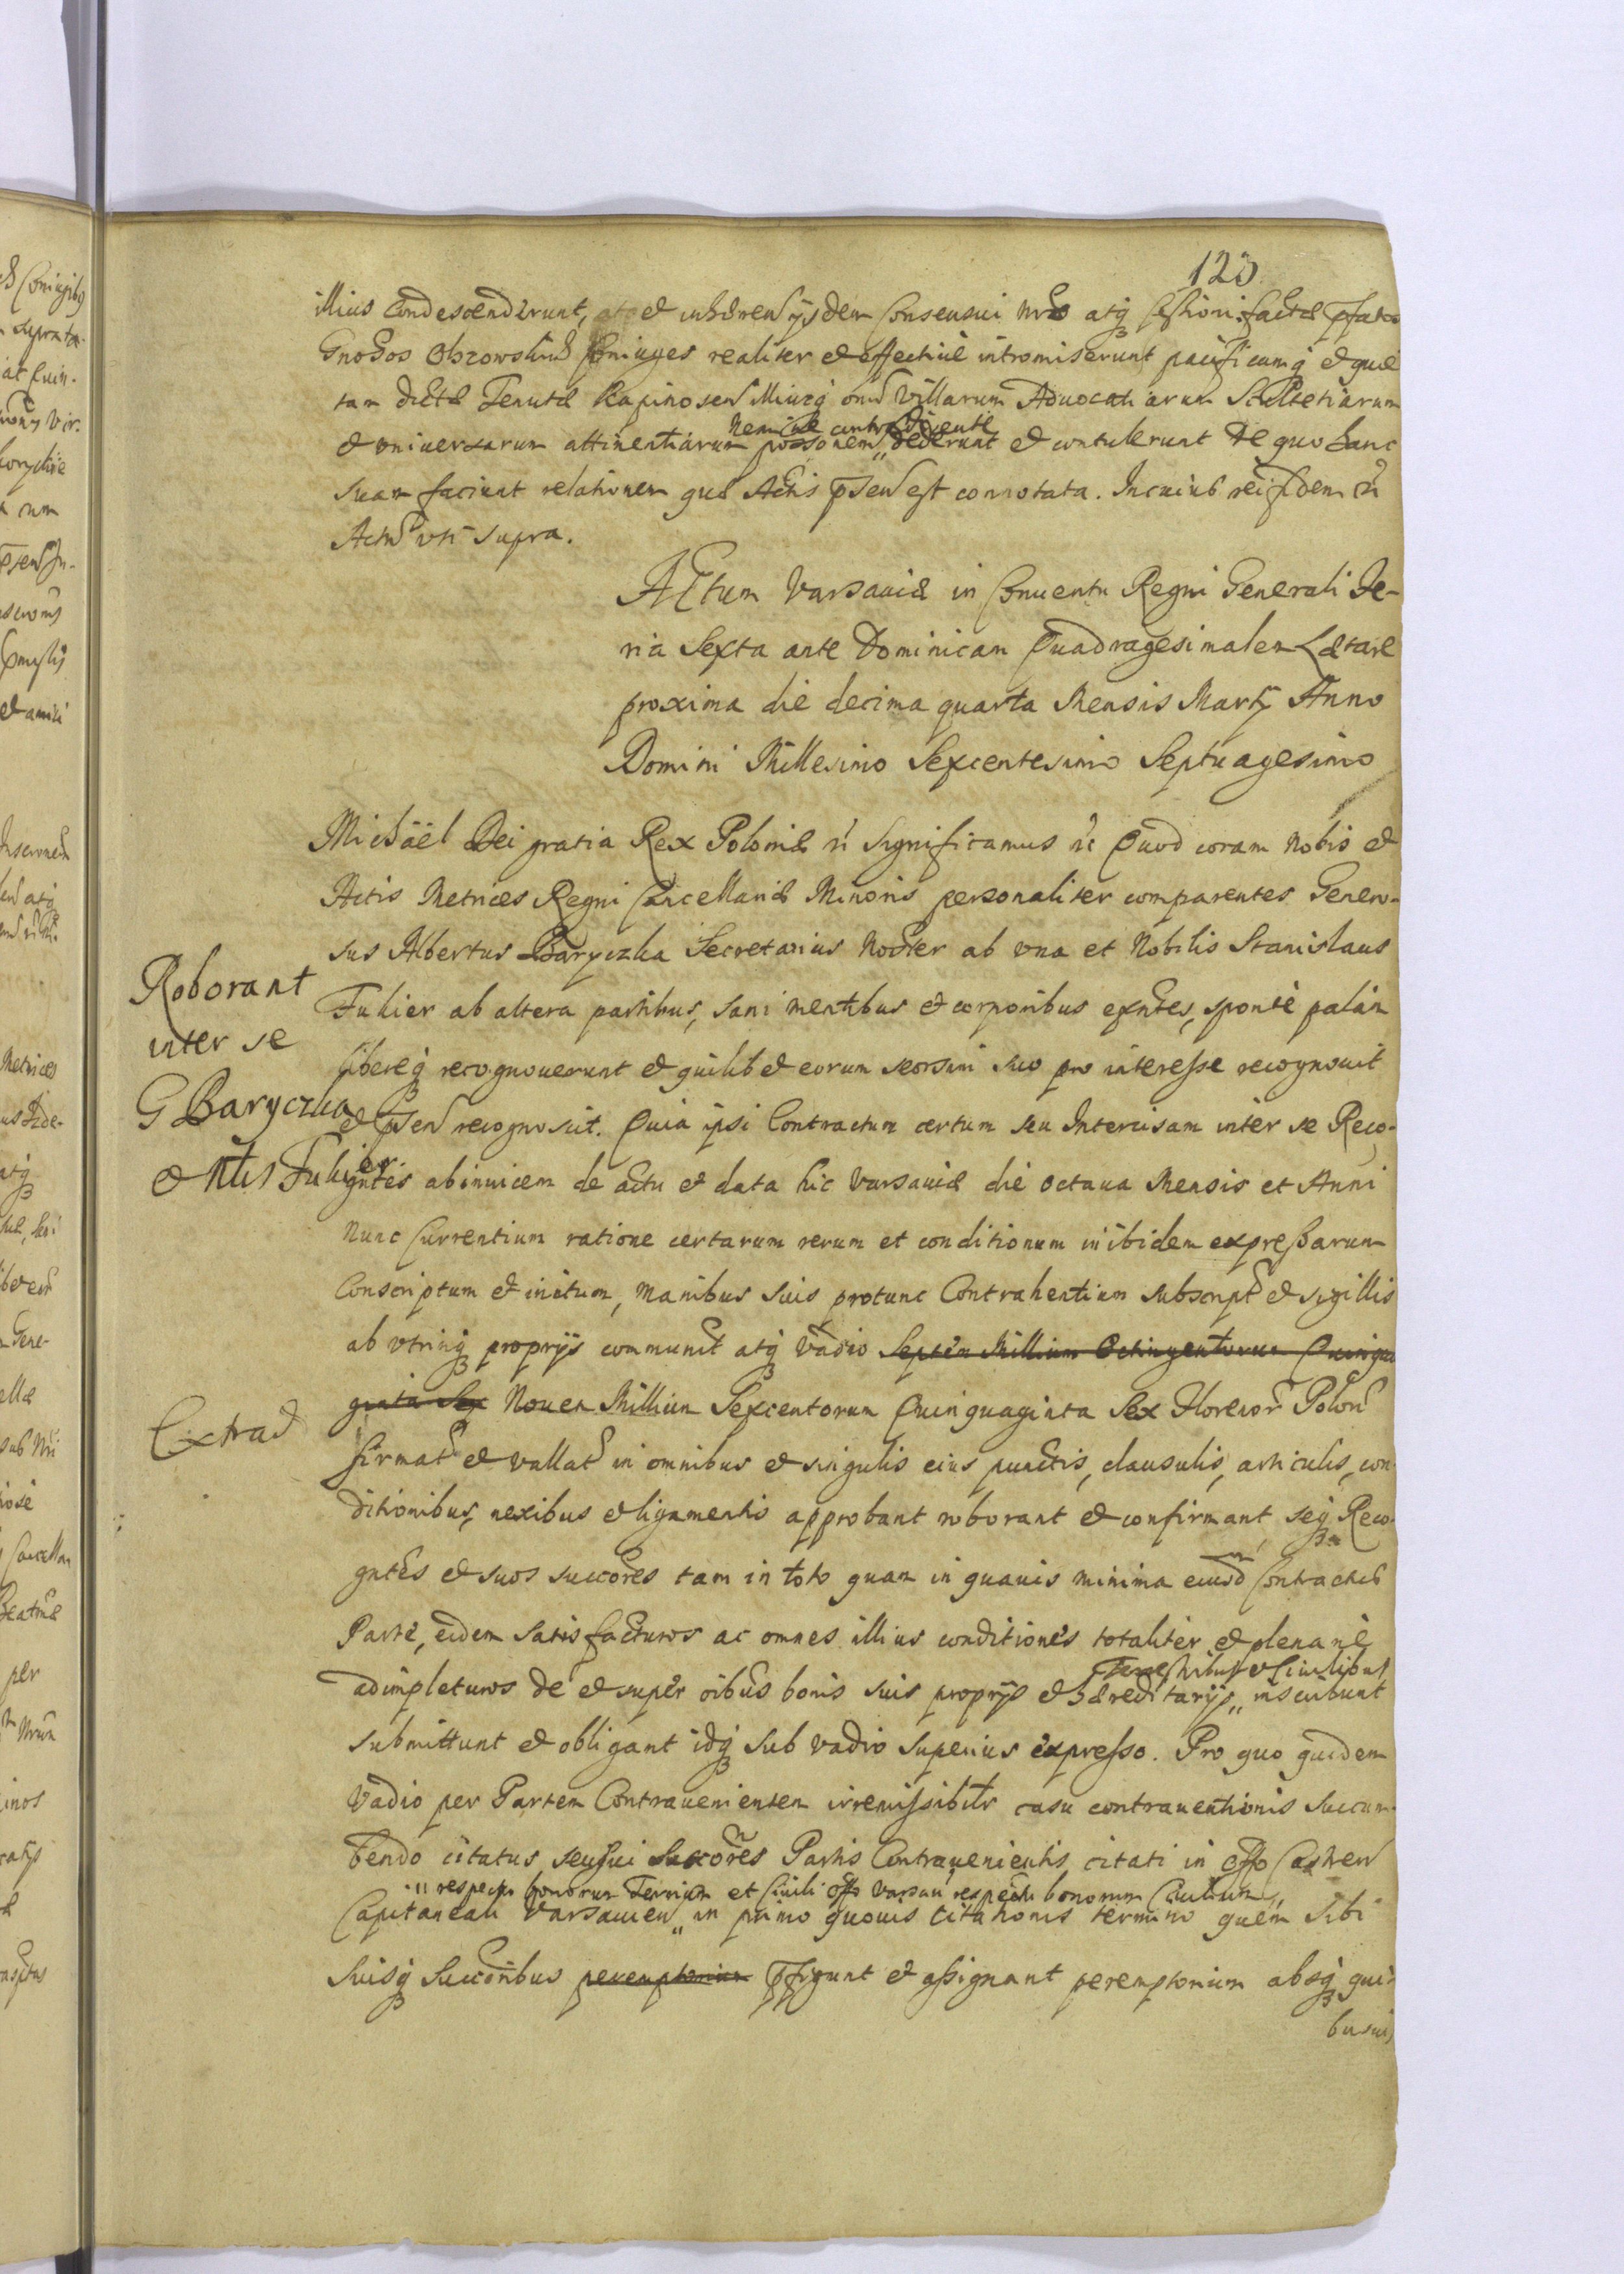 123
illius condescenderunt, et inhærens ijsdem Consensui nro atq3 Cessioni factæ pfatos
Gnosos Olszowskie Coniuges realiter et effectiue intromiserunt pacificamq3 et quie
tam dictæ Tenutæ Kapinosen illiusq3 oniu Villarum Aduocatiarum Scultetiarum
Nemine contradicente
et vniuersarum attinentiarum possonem,, dederunt et contulerunt De quo hanc
suam faciunt relationem quæ Actis psen est connotata. In cuius rei fidem etc
Actu vti supra.
Actum Varsauiæ in Conuentu Regni Generali Fe-
ria Sexta ante Dominicam Quadragesimalem Lætare
proxima die decima quarta Mensis Martij Anno
Domini Millesimo Sexcentesimo Septuagesimo
Michaël Dei gratia Rex Poloniæ etc Significamus etc Quod coram Nobis et
Actis Metrices Regni Cancellariæ Minoris personaliter comparentes Genero-
sus Albertus Baryczka Secretarius Noster ab vna et Nobilis Stanislaus
Fukier ab altera partibus, sani mentibus et corporibus exntes, sponte palam
libereq3 recognouerunt et quilibet eorum seorsim suo pro interesse recognouit
et psen recognoscit. Quia ipsi Contractum certum seu Intercisam inter se Reco-
gntes abinuicem de actu et data hic Varsauiæ die octaua Mensis et Anni
nunc Currentium ratione certarum rerum et conditionum inibidem expressarum
Conscriptum et initum, manibus suis protunc Contrahentium subscript et sigillis
ab vtrinq3 proprijs communit atq3 vadio Septem Millium Octingentorum Quinqua
ginta Sex Nouem Millium Sexcentorum Quinquaginta Sex Florenor Polon
firmat et vallat in omnibus et singulis eius punctis, clausulis, articulis, con-
ditionibus, nexibus et ligamentis approbant roborant et confirmant, seq3 Reco-
gntes et suos succores tam in toto quam in quauis minima eiusd Contractus
Parte, eidem satisfacturos ac omnes illius conditiones totaliter et plenarie
Terrestribus et Ciuilibus
adimpleturos de et super oibus bonis suis proprijs et hæreditarijs,, inscribunt
submittunt et obligant idq3 sub vadio superius expresso. Pro quo quidem
Vadio per Partem Contrauenientem irremissibilr casu contrauentionis succum-
bendo citatus, seu sui succores Partis Contrauenientis citati in offo Castren
,, respectu bonorum Terrium et Ciuili offo Varsau respectu bonorum Ciuilium,,
Capitaneali Varsauien,, in primo quouis citationis termino quem sibi
suisq3 succoribus peremptorium pfigunt et assignant peremptorium absq3 qui-
busuis
Roborant
inter se
G Baryczka
et Nlis Fukier
Extrad